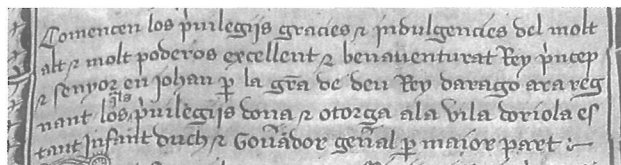 Comencen los p̉uilegijs gracies ⁊ indulgencies del molt
alt ⁊ molt poderos excellent ⁊ benauenturat Rey p̉ncep
⁊ senyor en johan ꝑ la gr̃a de deu Rey darago ara reg
nant los quals p̉uilegijs dona ⁊ otorga ala vila doriola es
tant Infant duch ⁊ Goủador gen̉al ꝑ maior part :~